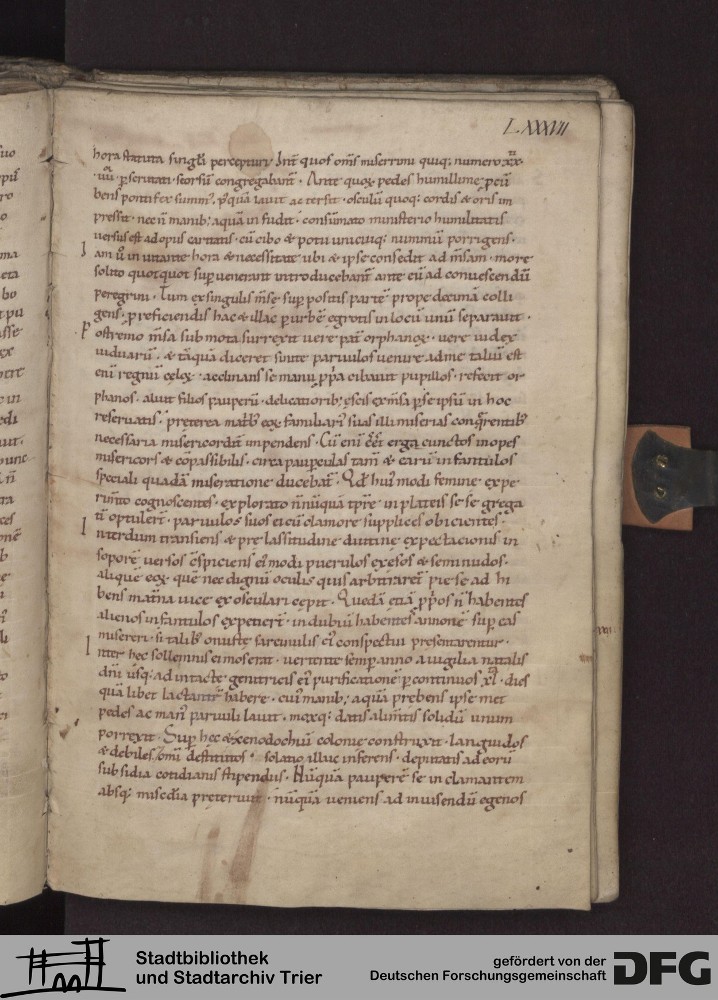 LXXXVII
hora statuta singuli percepturi. Int quos oms miserrimi quiq; numero xx
iiii. pscrutati. seorsū congregabant. Ante quox pedes humillime pcū
bens pontifex summ', pquā lauit ac tersit. osculū quoq; cordis & oris im
pressit. nec ñ manib; aquā infudit. consūmato ministerio humilitatis
versus est ad opus caritatis. cū cibo & potu unicuiq; nummū porrigens.
Iam ů inuitante hora & necessitate ubi & ipse consedit ad msam. more
solito quotquot supuenerant introducebant ante eū ad conuescendū
peregrini. Tum ex singulis mse suppositis partē prope decimā colli
gens. p reficiendis hac & illac p urbē egrotis in locū unū separauit.
Postremo msa submota surrexit uere pat orphanox. uere iudex
uiduarū. & tāquā diceret sinite paruulos uenire ad me taliū est
enī regnū celox. acclinans se manu ppa cibauit pupillos. refecit or
phanos. aluit filios pauperū. delicatiorib; escis ex msa p se ipsū in hoc
reseruatis. preterea matb eox familiari suas illi miserias conqrentib
necessaria misericordit impendens. Cū enī cēt erga cunctos inopes
misericors & cōpassibilis. circa paupculas tam & earū infantulos
speciali quadā miseratione ducebat. Qd hui modi femine expe
rimto cognoscentes. explorato nnūquā tpre in plateis se se grega
tī optulert. paruulos suos ei cū clamore supplices obicientes.
Interdum transiens & pre lassitudine diutine expectationis in
soporē uersos cspiciens ei modi puerulos exesos & seminudos.
aliquē eox. quē nec dignū oculis quis arbitraret pie se ad hi
bens matna uice exosculari cepit. Quedā etiā ppos ñ habentes
alienos infantulos expetiert. in dubiū habentes annonē sup eas
misereri. si talib onuste sarcinulis ei conspectui presentarentur.
Inter hec sollemnis ei mos erat. uertente semp anno a uigilia natalis
dni usq; ad intacte genitricis ei purificationē p continuos xl dies
quā libet lactantē habere. cui manib; aquā prebens ipse met
pedes ac man paruuli lauit. moxq; datis alimtis solidū unum
porrexit. Sup hec & xenodochiū colonie construxit. languidos
& debiles omi destitutos solatio illuc inferens. deputatis ad eorū
subsidia cotidianis stipendiis. Nūquā pauperē se inclamantem
absq; misedia preteriuit. nūquā ueniens ad inuisendū egenos
Stadtbibliothek
und Stadtarchiv Trier
gefördert von der
Deutschen Forschungsgemeinschaft
DFG